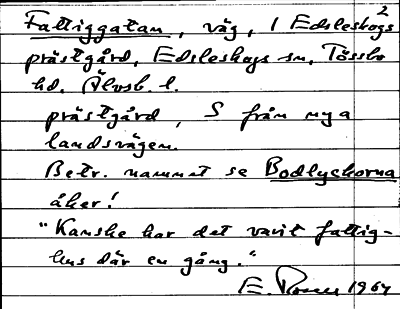 2
Fattiggatan, väg, i Edsleskogs
prästgård, Edsleskogs sn, Tössbo
hd. Älvsb. l.
prästgård, S från nya
landsvägen.
Betr. namnet se Bodlyckorna
åker!
"Kanske har det varit fattig-
hus där en gång."
E. 1964